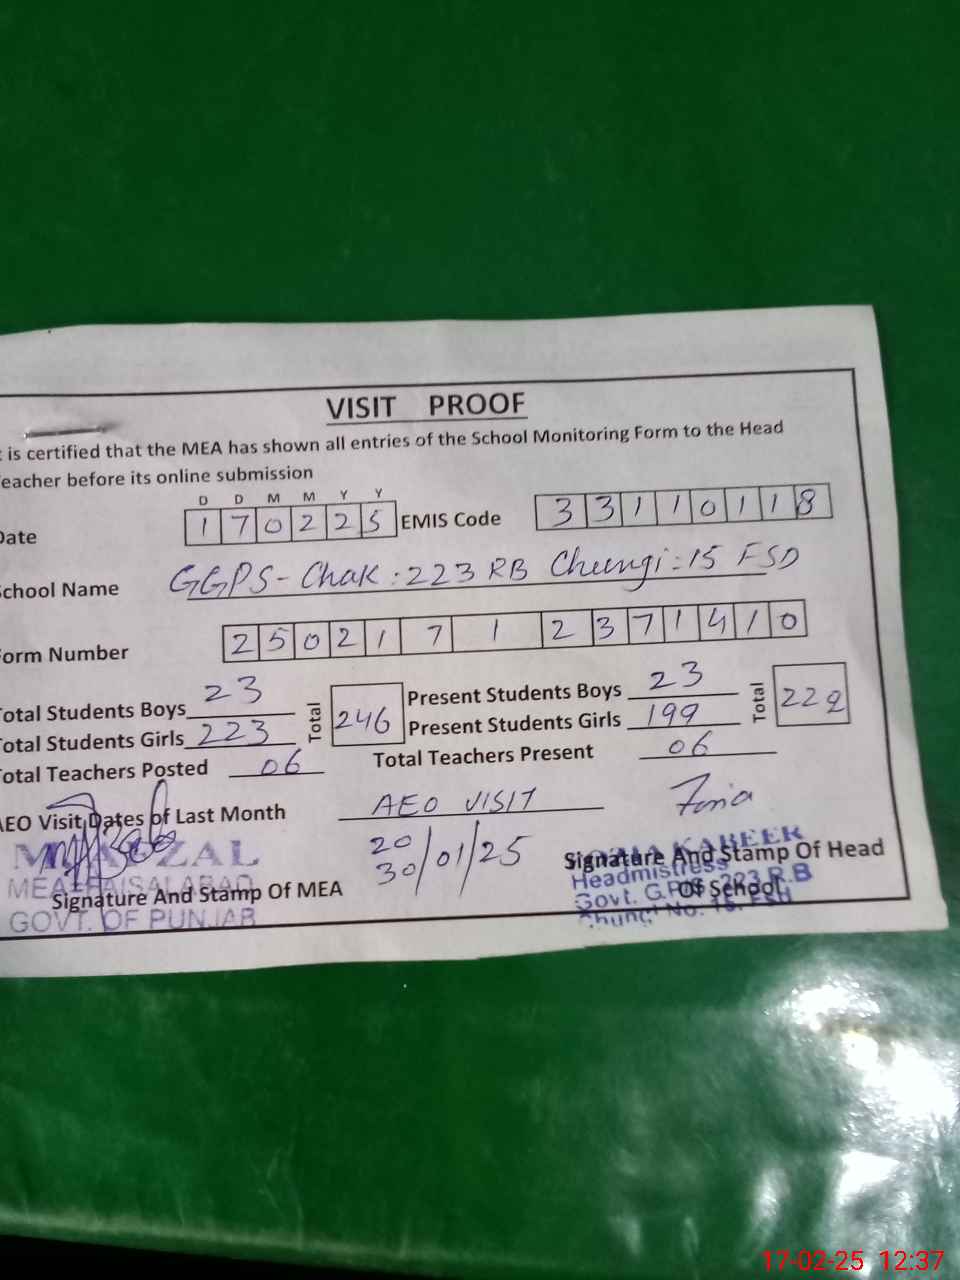 VISIT PROOF
is certified that the MEA has shown all entries of the School Monitoring Form to the Head
eacher before its online submission
D D M M Y Y
Date 170225 EMIS Code 33110118
School Name GGPS- Chak:223 RB Chungi:15 FSD
Form Number 25021712371410
Total Students Boys 23 Total 246 Present Students Boys 23 Total 222
Total Students Girls 223 Present Students Girls 199
Total Teachers Posted 06 Total Teachers Present 06
AEO Visit Dates of Last Month AEO VISIT
20
30/01/25
ZAL
MEA FAISALABAD
GOVT. OF PUNJAB
Signature And Stamp Of MEA
KABEER
Headmistress
Govt. G.P.S 223 R.B
Chungi No. 15. FSD
Signature And Stamp Of Head
Of School
17-02-25 12:37